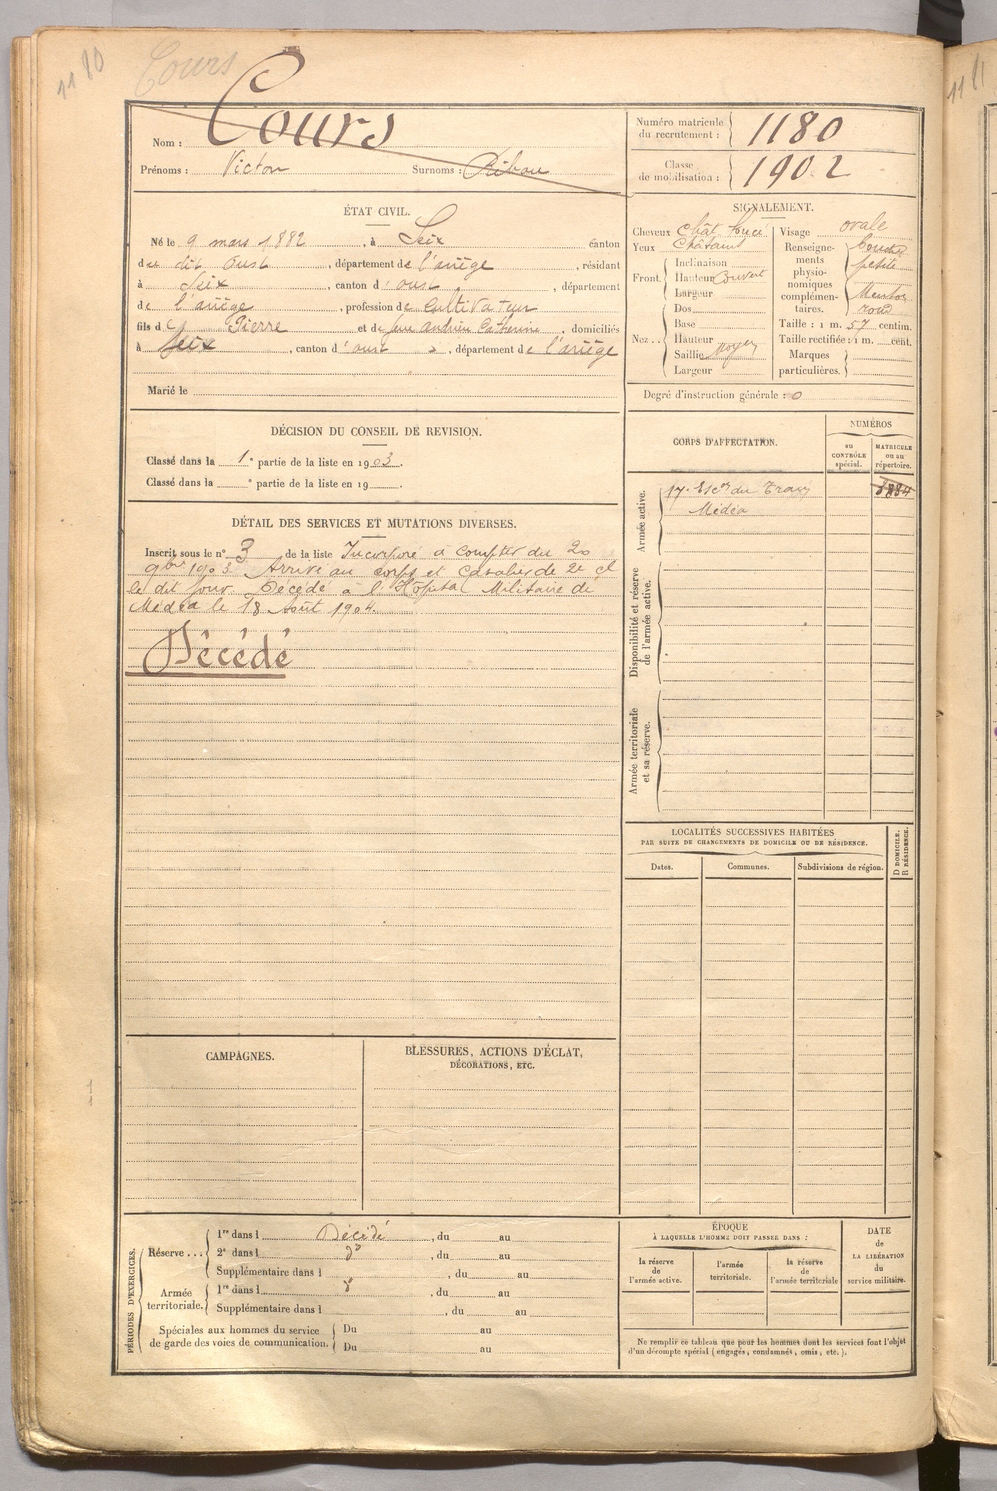 1180
Cours
Nom : Cours
Prénoms : Victor Surnoms : Ribou
Numéro matricule du recrutement : 1180
Classe de mobilisation : 1902
ÉTAT CIVIL.
Né le 9 mars 1882, à Seix canton
d dit Oust, département de l'ariège, résidant
à Seix, canton d'oust, département
de l'ariège, profession de cultivateur
fils de Pierre et de feue andrieu Catherine, domiciliés
à Seix, canton d'oust, département de l'ariège
Marié le
SIGNALEMENT.
Cheveux chât foncé
Yeux Châtains
Front. Inclinaison
Hauteur Couvert
Largeur
Nez .. Dos
Base
Hauteur
Saillie Moyen
Largeur
Visage ovale
Renseignements physionomiques complémentaires. bouche
petite
Menton
rond
Taille : 1 m. 57 centim.
Taille rectifiée : 1 m. cent.
Marques particulières.
Degré d'instruction générale : 0
DÉCISION DU CONSEIL DE REVISION.
Classé dans la 1e partie de la liste en 1903.
Classé dans la e partie de la liste en 19
DÉTAIL DES SERVICES ET MUTATIONS DIVERSES.
Inscrit sous le n° 3 de la liste Incorporé à compter du 20
9bre 1903. Arrivé au corps et cavalier de 2e cl
le dit jour. Décédé à l'Hôpital Militaire de
Médéa le 18 Août 1904.
Décédé
CORPS D'AFFECTATION.
NUMÉROS
au CONTRÔLE spécial.
MATRICULE ou au répertoire.
Armée active.
17e Escon du Train
Médéa
Disponibilité et réserve de l'armée active.
Armée territoriale et sa réserve.
LOCALITÉS SUCCESSIVES HABITÉES
PAR SUITE DE CHANGEMENTS DE DOMICILE OU DE RÉSIDENCE.
Dates.
Communes.
Subdivisions de région.
D DOMICILE.
R RÉSIDENCE.
CAMPAGNES.
BLESSURES, ACTIONS D'ÉCLAT,
DÉCORATIONS, ETC.
PÉRIODES D'EXERCICES.
Réserve ...
1re dans l Décédé, du au
2e dans l do, du au
Supplémentaire dans l, du au
Armée territoriale.
1re dans l do, du au
Supplémentaire dans l, du au
Spéciales aux hommes du service de garde des voies de communication.
Du au
Du au
ÉPOQUE
À LAQUELLE L'HOMME DOIT PASSER DANS :
la réserve de l'armée active.
l'armée territoriale.
la réserve de l'armée territoriale
DATE de LA LIBÉRATION du service militaire.
Ne remplir ce tableau que pour les hommes dont les services font l'objet
d'un décompte spécial (engagés, condamnés, omis, etc.).